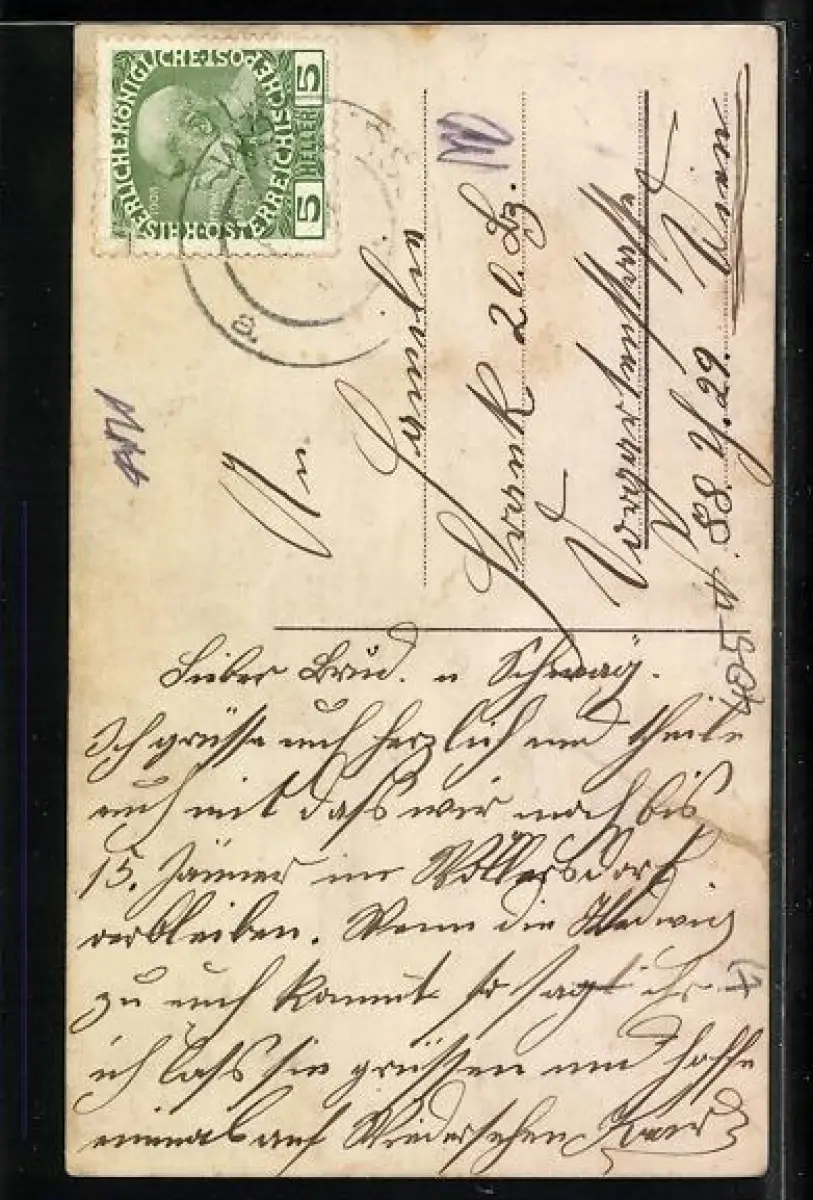 KAISERLICHE KÖNIGLICHE ÖSTERREICHISCHE POST
5 HELLER 5
An
Familie
Frank 20. Bz.
Wien
88 II. 29.
405
Lieber Brud. u Schwäg.
Ich grüsse euch herzlich und theile
euch mit dass wir noch bis
15. Jänner in Wöllersdorf
verbleiben. Wenn die Hedwig
zu euch kommt so sagt ihr
ich lass sie grüssen und hoffe
einmal auf Wiedersehen